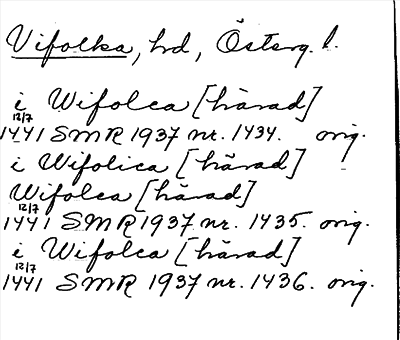 Vifolka, hd, Österg. l.
i Wifolca [härad]
12/7
1441 SMR 1937 nr. 1434. orig.
i Wifolica [härad]
Wifolca [härad]
12/7
1441 SMR 1937 nr. 1435. orig.
i Wifolca [härad]
12/7
1441 SMR 1937 nr. 1436. orig.